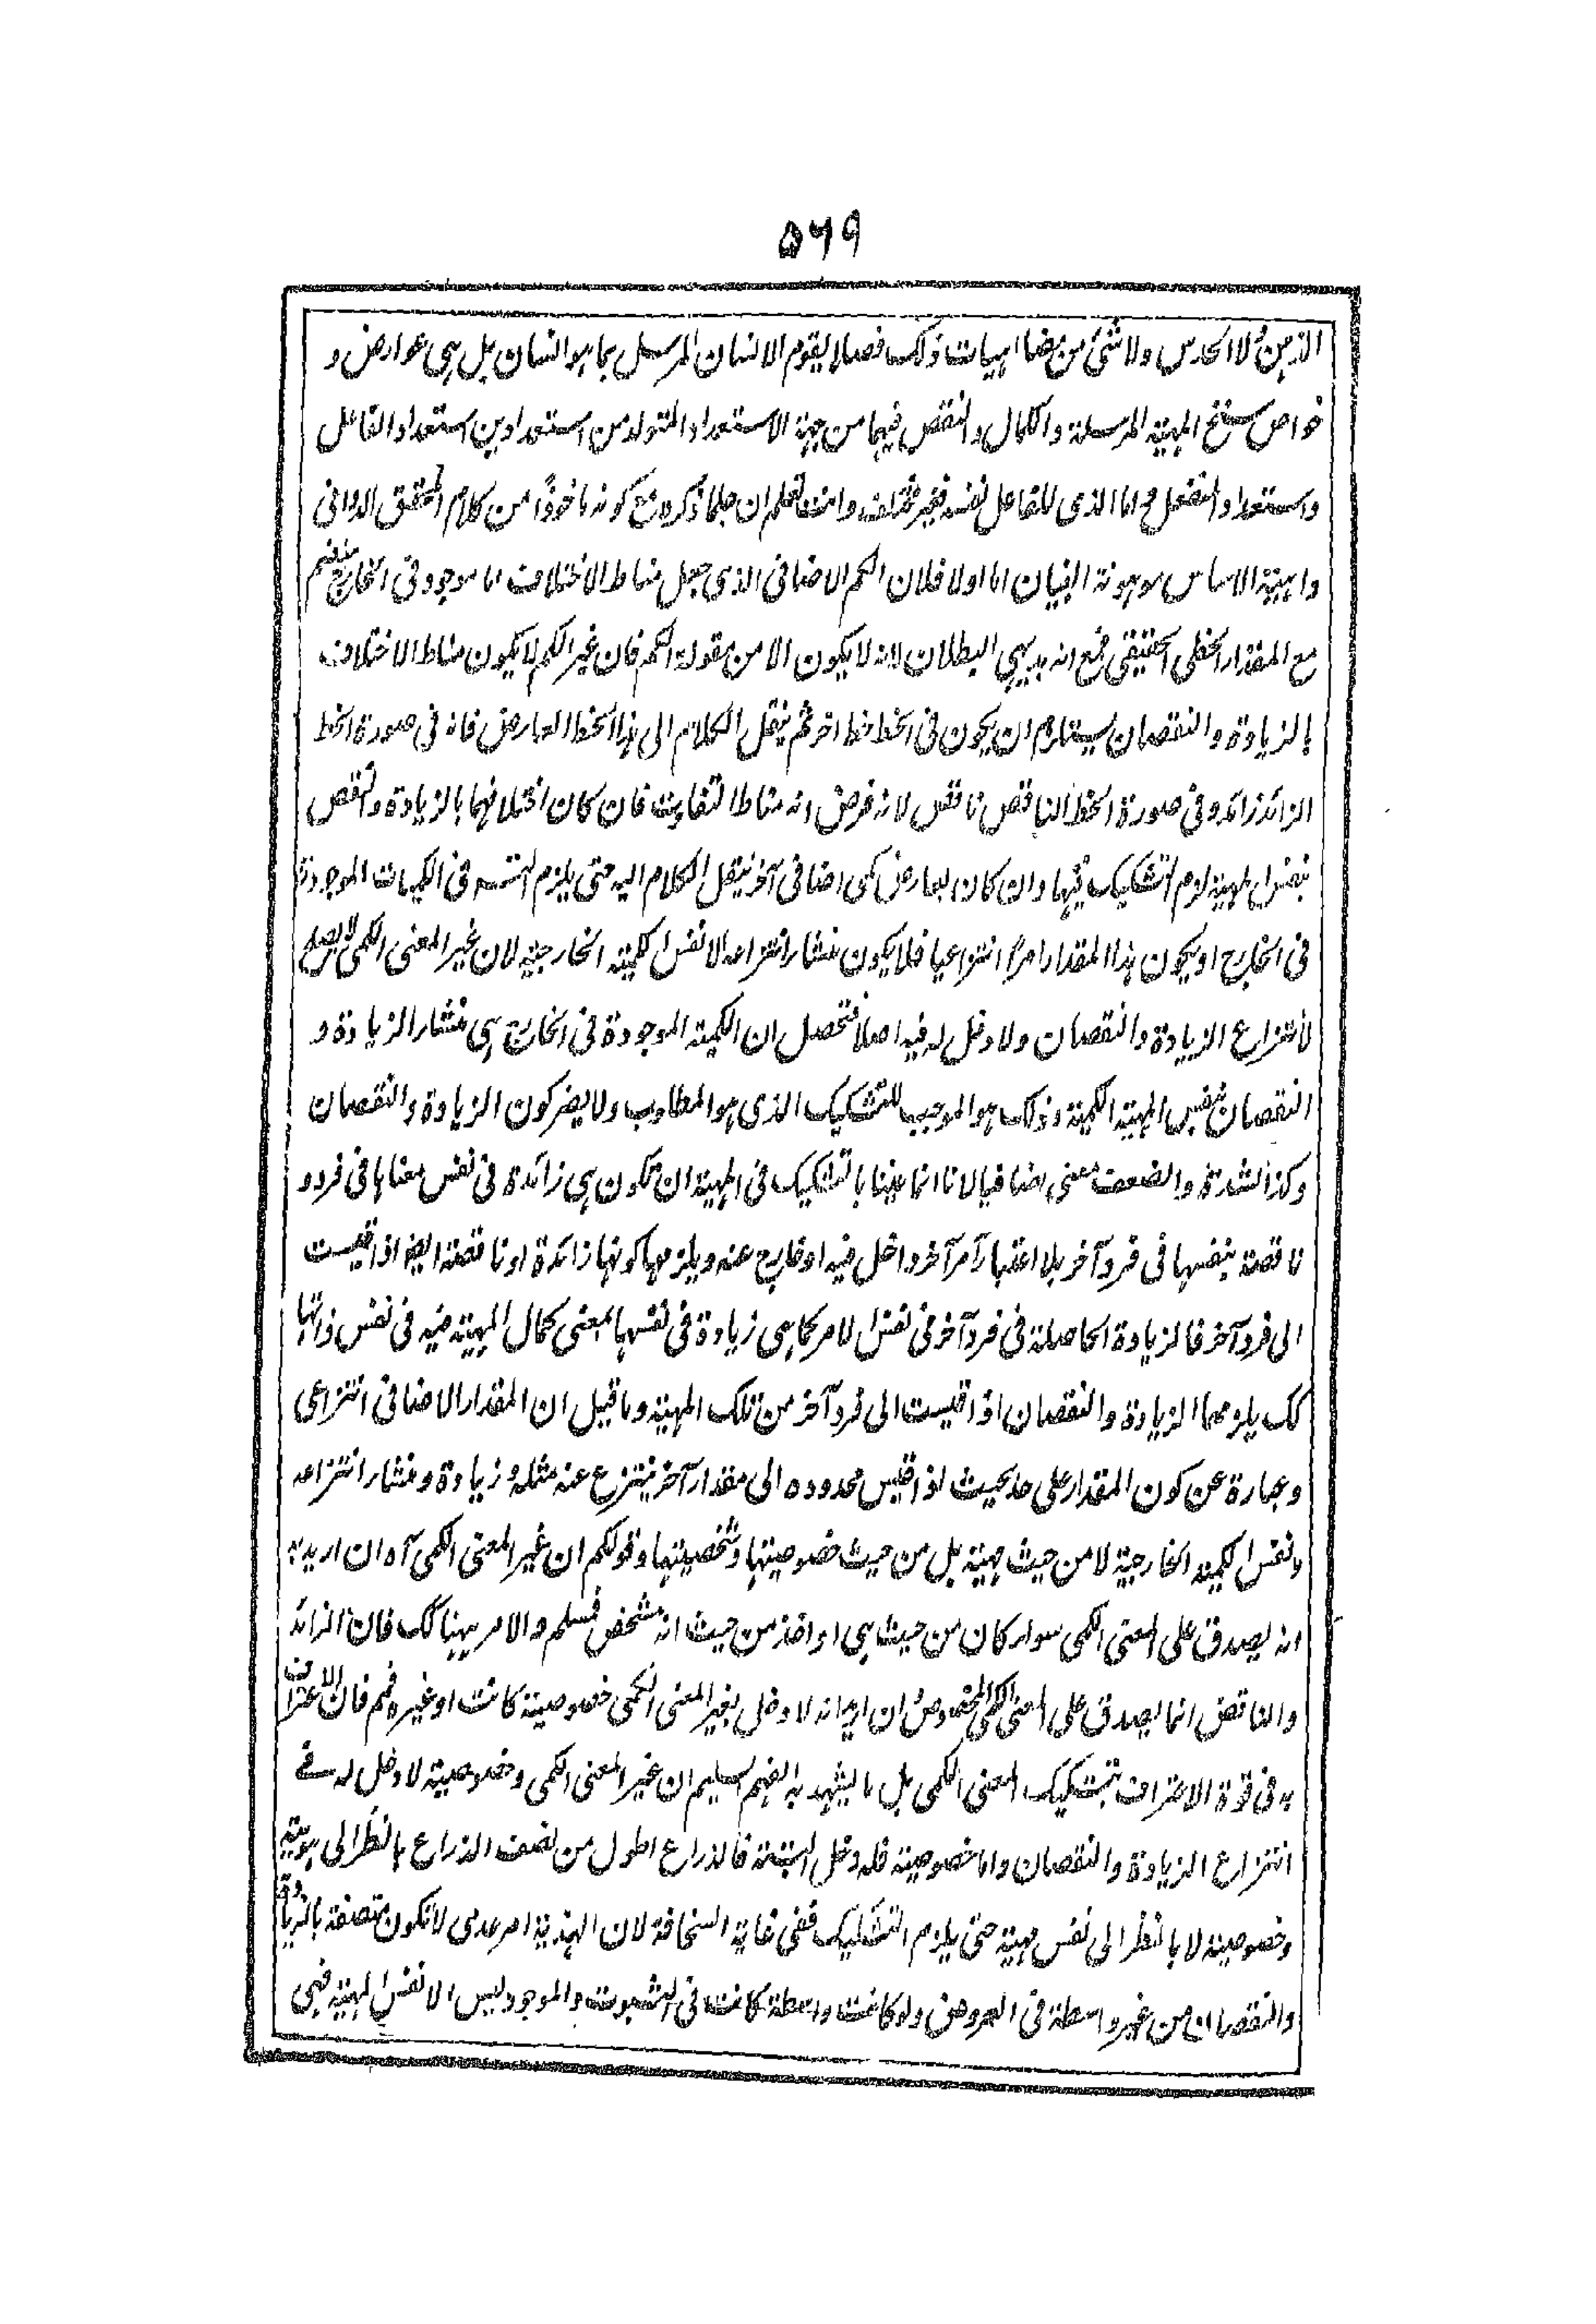 ٥٦٩
الذهن ولا الحدس ولا شئ من مضاهيات ذلك فصلا ليقوم الانسان المرسل بما هو انسان بل هى عوارض و
خواص سنخ المهية المرسلة والكمال والنقص فيهما من جهة الاستعداد المتولد من استعدادين استعداد الفاعل
واستعداد المنفعل واما الذى للفاعل نفسه فغير مختلف وانت تعلم ان جلما ذكره مع كونه ماخوذًا من كلام المحقق الدوانى
واهية الاساس موهونة البنيان اما اولا فلان الكم الاضافى الذى جعل مناط الاختلاف اما موجود فى الخارج منضم
مع المقدار الخطى الحقيقى فمع انه بديهى البطلان لانه لا يكون الا من مقولة الكم فان غير الكم لا يكون مناط الاختلاف
بالزيادة والنقصان يستلزم ان يكون فى الخط خط اخر ثم ينقل الكلام الى هذا الخط العارض فانه فى صورة الخط
الزائد زائد وفى صورة الخط الناقص ناقص لانه فرض انه مناط التفاوت فان كان اختلافهما بالزيادة والنقص
بنفس المهية لزم التشكيك فيها وان كان بعارض كمى اضافى آخر ينقل الكلام اليه حتى يلزم التس فى الكميات الموجودة
فى الخارج او يكون هذا المقدار امرًا انتزاعيا فلا يكون منشأ انتزاعه الا نفس الكمية الخارجية لان غير المعنى الكمى لا يصلح
لانتزاع الزيادة والنقصان ولا دخل له فيه اصلا فتحصل ان الكمية الموجودة فى الخارج هى منشأ الزيادة و
النقصان بنفس المهية الكمية وذلك هو الموجب للتشكيك الذى هو المطلوب ولا يضر كون الزيادة والنقصان
وكذا الشدة والضعف معنى اضافيا لانا انما عنينا بالتشكيك فى المهية ان تكون هى زائدة فى نفس معناها فى فرد و
ناقصة بنفسها فى فرد آخر بلا اعتبار آمر آخر داخل فيه او خارج عنه ويلزمها كونها زائدة او ناقصة ايضا اذا قيست
الى فرد آخر فالزيادة الحاصلة فى فرد آخر فى نفس الامر كما هى زيادة فى نفسها بمعنى كمال المهية فيه فى نفس ذاتها
كك يلزمها الزيادة والنقصان اذا قيست الى فرد آخر من تلك المهية وما قيل ان المقدار الاضافى انتزاعى
وعبارة عن كون المقدار على حد بحيث لو اقيس محدوده الى مقدار آخر ينتزع عنه مثله و زيادة ومنشأ انتزاعه
ونفس الكمية الخارجية لا من حيث مهية بل من حيث خصوصيتها وشخصيتها وقولكم ان غير المعنى الكمى آه ان اريد به
انه يصدق على المعنى الكمى سواء كان من حيث هى او اخذ من حيث انه مشخص فمسلم والامر ههنا كك فان الزائد
والناقص انما يصدق على المعنى الكمى المخصوص ان اريد انه لا دخل بغير المعنى الكمى خصوصية كانت او غيره فمم فان الاعتراف
به فى قوة الاعتراف بتشكيك المعنى الكمى بل ما يشهد به الفهم السليم ان غير المعنى الكمى وخصوصيته لا دخل له فے
انتزاع الزيادة والنقصان واما خصوصيته فله دخل البتة فالذراع اطول من نصف الذراع بالنظر الى هويته
وخصوصيته لا بالنظر الى نفس مهيته حتى يلزم التشكيك ففى غاية السخافة لان الهذية امر عدمى لا تكون متصفة بالزيادة
والنقصان من غير واسطة فى العروض ولو كانت واسطة كانت فى الثبوت والموجود ليس الا نفس المهية فهى